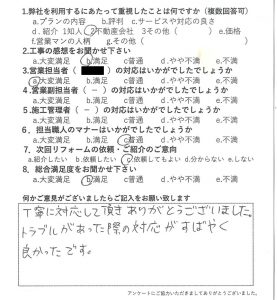 1.弊社を利用するにあたって重視したことは何ですか（複数回答可）
a.プランの内容 b.評判 c.サービスや対応の良さ
d.紹介 1知人 2不動産会社 3その他（ ） e.価格
f.営業マンの人柄 g.その他（ ）
2.工事の感想をお聞かせ下さい
a.大変満足 b.満足 c普通 d.やや不満 e.不満
3.営業担当者（ ）の対応はいかがでしたでしょうか
a.大変満足 b.満足 c普通 d.やや不満 e.不満
4.営業副担当者（－）の対応はいかがでしたでしょうか
a.大変満足 b.満足 c普通 d.やや不満 e.不満
5.施工管理者（－）の対応はいかがでしたでしょうか
a.大変満足 b.満足 c普通 d.やや不満 e.不満
6．担当職人のマナーはいかがでしたでしょうか
a.大変満足 b.満足 c普通 d.やや不満 e.不満
7．次回リフォームの依頼・ご紹介のご意向
a.紹介したい b.依頼したい c依頼してもよい d.分からない e.しない
8．総合満足度をお聞かせ下さい
a.大変満足 b.満足 c普通 d.やや不満 e.不満
何かご意見がございましたらご記入をお願い致します
丁寧に対応して頂きありがとうございました。
トラブルがあった際の対応がすばやく
良かったです。
アンケートにご協力いただきましてありがとうございました。